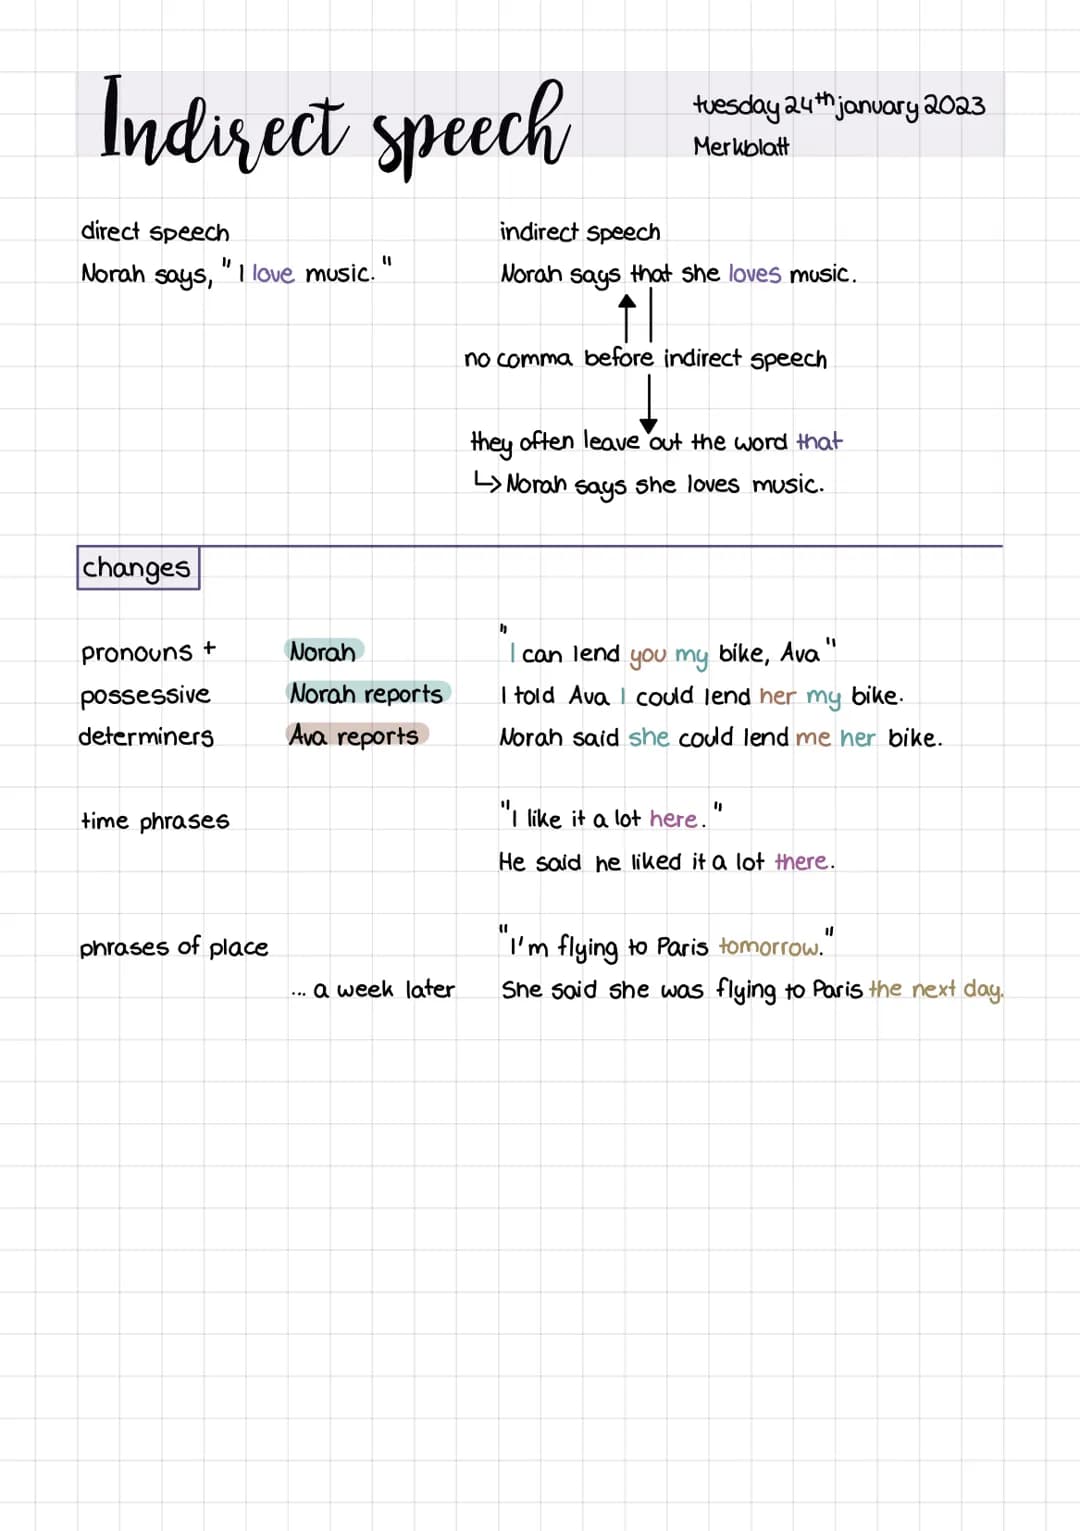 Indirect speech
tuesday 24th january 2023
Merkblatt
direct speech
Norah says, "I love music."
indirect speech
Norah says that she loves music.
no comma before indirect speech
they often leave out the word that
↳ Norah says she loves music.
changes
pronouns +
possessive
determiners
Norah
Norah reports
Ava reports
"I can lend you my bike, Ava"
I told Ava I could lend her my bike.
Norah said she could lend me her bike.
time phrases
"I like it a lot here."
He said he liked it a lot there.
phrases of place
"I'm flying to Paris tomorrow."
... a week later
She said she was flying to Paris the next day.